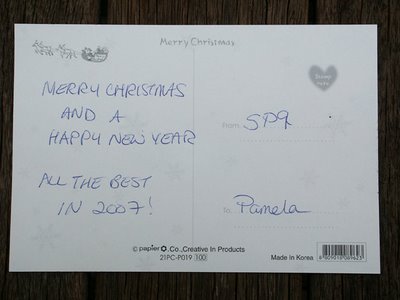 Merry Christmas
MERRY CHRISTMAS
AND A
HAPPY NEW YEAR
ALL THE BEST
IN 2007!
Stamp
Here
From. SP9
To. Pamela
© papier Co.,Creative In Products
21PC-P019 100
Made in Korea
8 809018 089623